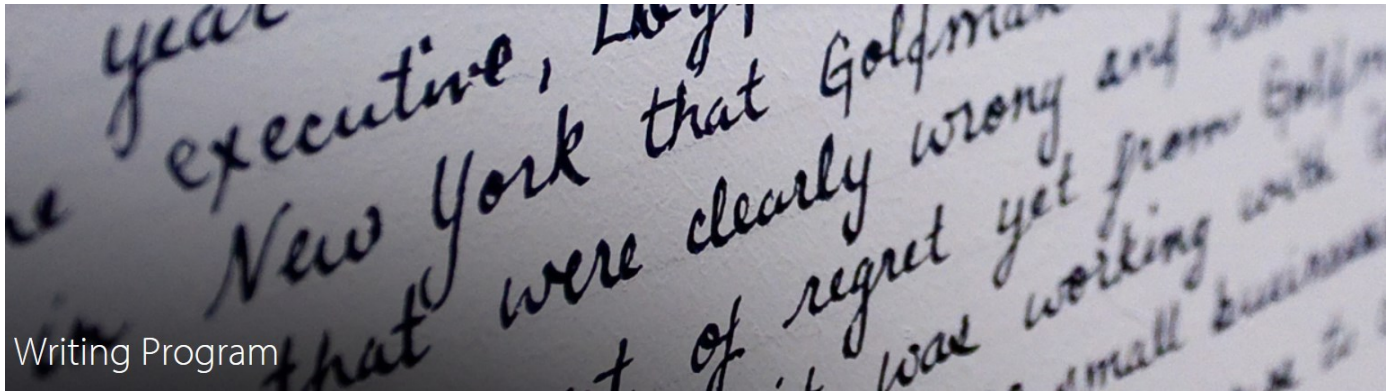 year
executive,
in New York that Goldman
that were clearly wrong and
of regret yet from
was working with
small business
to
Writing Program